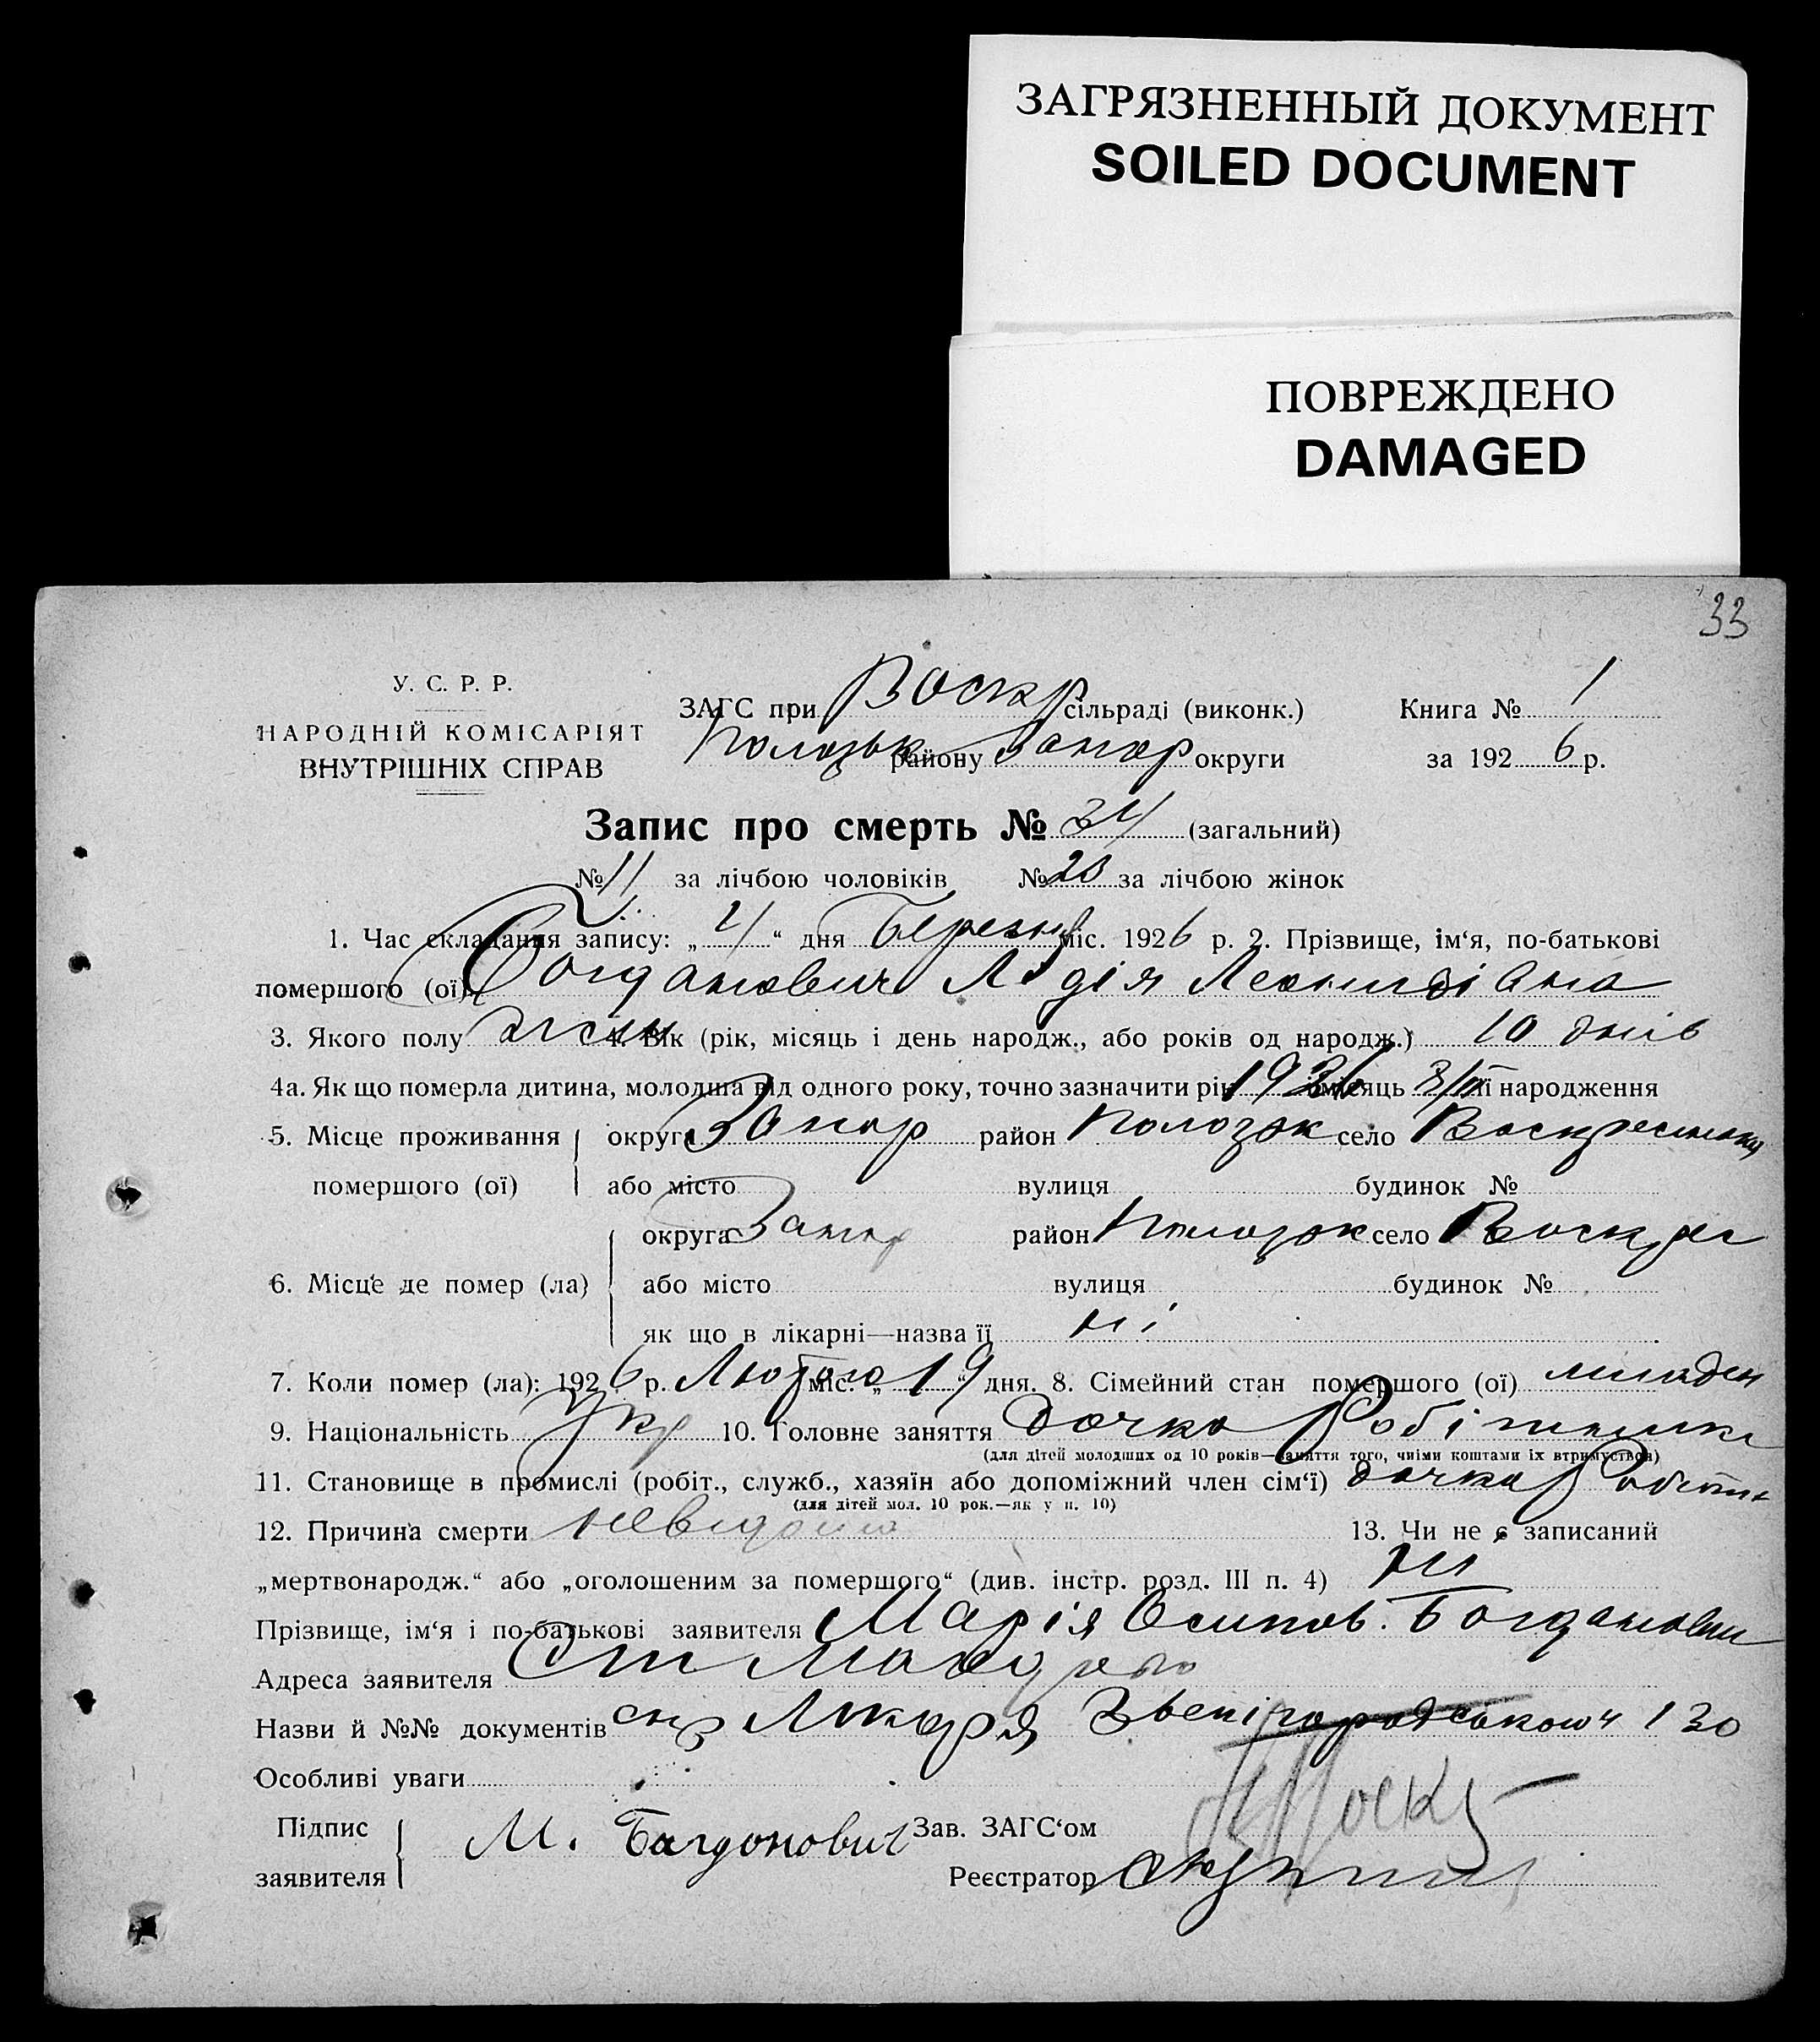 ЗАГРЯЗНЕННЫЙ ДОКУМЕНТ
SOILED DOCUMENT
ПОВРЕЖДЕНО
DAMAGED
33
У. С. Р. Р.
НАРОДНІЙ КОМІСАРІЯТ
ВНУТРІШНІХ СПРАВ
ЗАГС при Воскр сільраді (виконк.)
Пологівськ району Запор округи
Книга № 1
за 1926 р.
Запис про смерть № 34 (загальний)
№ 11 за лічбою чоловіків № 23 за лічбою жінок
1. Час складання запису: „4“ дня Березня міс. 1926 р. 2. Прізвище, ім‘я, по-батькові
помершого (ої) Богданович Лідія Леонидівна
3. Якого полу жін 4. Вік (рік, місяць і день народж., або років од народж.) 10 днів
4а. Як що померла дитина, молодша від одного року, точно зазначити рік 1926 місяць її народження
5. Місце проживання округа Запор район Пологівськ село Воскресенка
помершого (ої) або місто вулиця будинок №
округа Запор район Пологівськ село Воскрес
6. Місце де помер (ла) або місто вулиця будинок №
як що в лікарні—назва її ні
7. Коли помер (ла): 1926 р. Лютого міс. „19“ дня. 8. Сімейний стан помершого (ої) младен
9. Національність Укр 10. Головне заняття дочка Робітника
(для дітей молодших од 10 років—заняття того, чиїми коштами їх втримується)
11. Становище в промислі (робіт., служб., хазяїн або допоміжний член сім‘ї) дочка Робітн
(для дітей мол. 10 рок.—як у п. 10)
12. Причина смерти невідома 13. Чи не є записаний
„мертвонародж.“ або „оголошеним за помершого“ (див. інстр. розд. III п. 4) ні
Прізвище, ім‘я і по-батькові заявителя Марія Осипов. Богданович
Адреса заявителя Ст
Назви й №№ документів Лікаря Звенігородського ч 130
Особливі уваги
Підпис заявителя М. Багдонович Зав. ЗАГС‘ом
Реєстратор